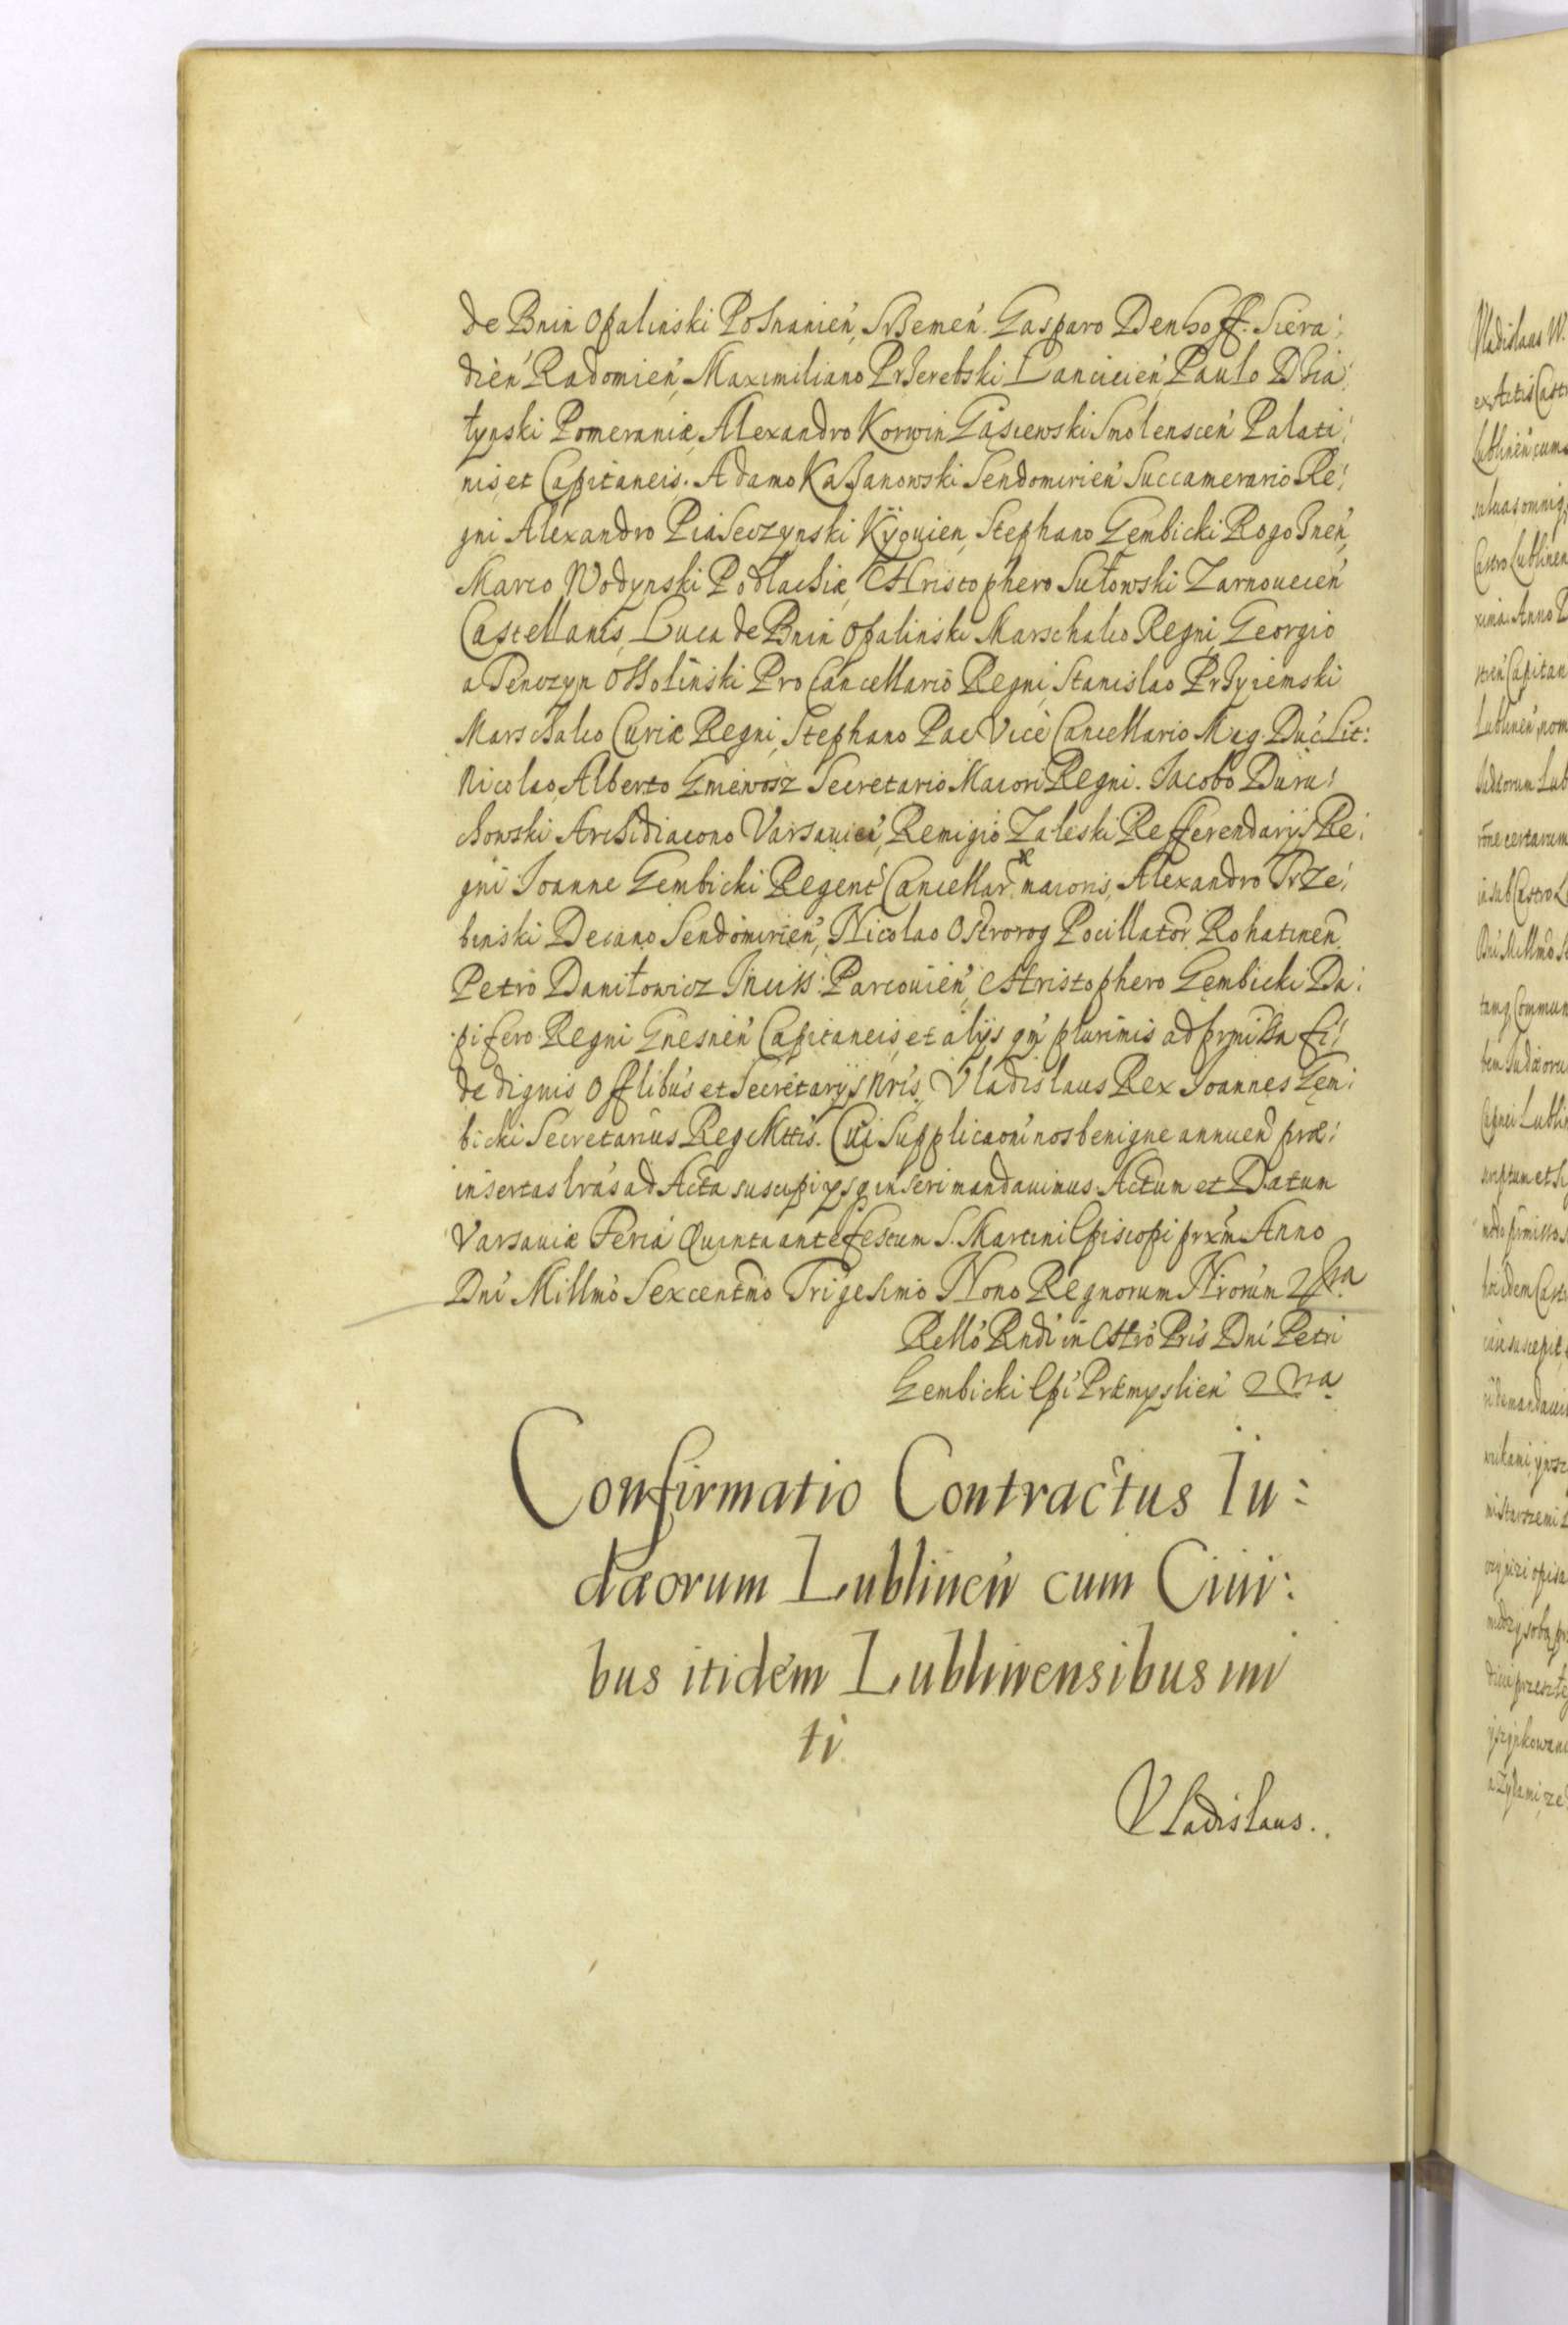 de Bnin Opalinski Posnanień, Srzemeń. Gasparo Denhoff. Siera:
dień Radomień, Maximiliano Przerebski Lancicień, Paulo Dzia:
łynski Pomeraniæ, Alexandro Korwin Gąsiewski Smolensceń Palati:
nis, et Capitaneis. Adamo Kazanowski Sendomirień Succamerario Re:
gni Alexandro Piaseczynski Kÿouien, Stephano Gembicki Rogozneń,
Marco Wodynski Podlachiæ, Christophero Sułowski Zarnoueceń
Castellanis, Luca de Bnin Opalinski Marschalco Regni, Georgio
a Tenczyn Ossolinski Pro Cancellario Regni, Stanislao Przyiemski
Marschalco Curiæ Regni, Stephano Pac Vice Cancellario Mag. Duc Lit:
Nicolao, Alberto Gniewosz Secretario Maiori Regni. Iacobo Duru:
chowski Archidiacono Varsauień, Remigio Zaleski Refferendarijs Re:
gni Ioanne Gembicki Regent Cancellar maioris, Alexandro Trze:
binski Decano Sendomirień, Nicolao Ostrorog Pocillator Rohatinen
Petro Daniłowicz Inciss: Parcouień, Christophero Gembicki Da:
pifero Regni Gnesneń Capitaneis, et alijs qm plurimis ad prmissa fi:
de dignis Offlibus et Secretarijs nris, Vladislaus Rex Ioannes Gem:
bicki Secretarius Reg Mttis. Cui Supplicaoni nos benigne annuen præ:
insertas lras ad Acta suscipi ysq inseri mandauimus. Actum et Datum
Varsauiæ Feria Quinta ante festum S. Martini Episcopi prxm Anno
Dni Millmo Sexcentmo Trigesimo Nono Regnorum Nrorum
Rello Rndi in Chro Pris Dni Petri
Gembicki Epi Præmyslień
Confirmatio Contractus Iu:
dæorum Lublineń cum Ciui:
bus itidem Lublinensibus ini
ti
Vladislaus..